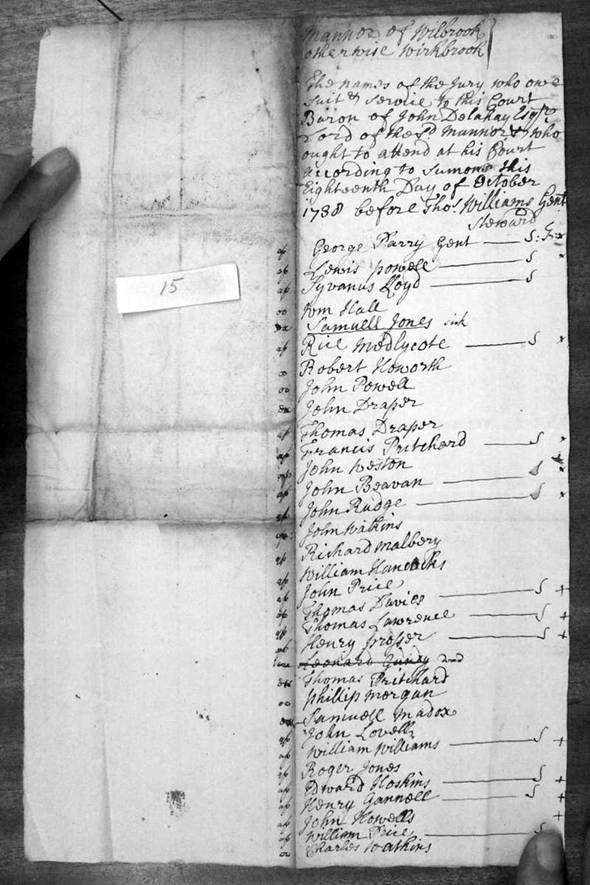 Mannor of Wilbrook
otherwise Wirkbrook
The names of the Jury who owe
Suit & Service to this Court
Baron of John Dolahay Esqr
Lord of the sd Mannor & who
ought to attend at his Court
according to Sumons this
Eighteenth Day of October
1738 before Thos. Williams Gent
Steward
George Parry Gent S:
Lewis powell S
Sylvanus Lloyd S
Wm Hall
Samuell Jones sick
Rice Medlycote S
Robert Howorth
John Powell
John Draper
Thomas Draper
Francis Pritchard S
John Weston
John Beavan S
John Rudge S
John Watkins
Richard Malbery
William Hancocks
John Price
Thomas Davies S +
Thomas Lawrence S +
Henry Prosser S +
Leonard dead
Thomas Pritchard
Phillip Morgan
Samuell Madox
John Lovell
William Williams S +
Roger Jones
Edward Hoskins S +
Henry Gannell S +
John Howells +
William Price
Charles Watkins
15